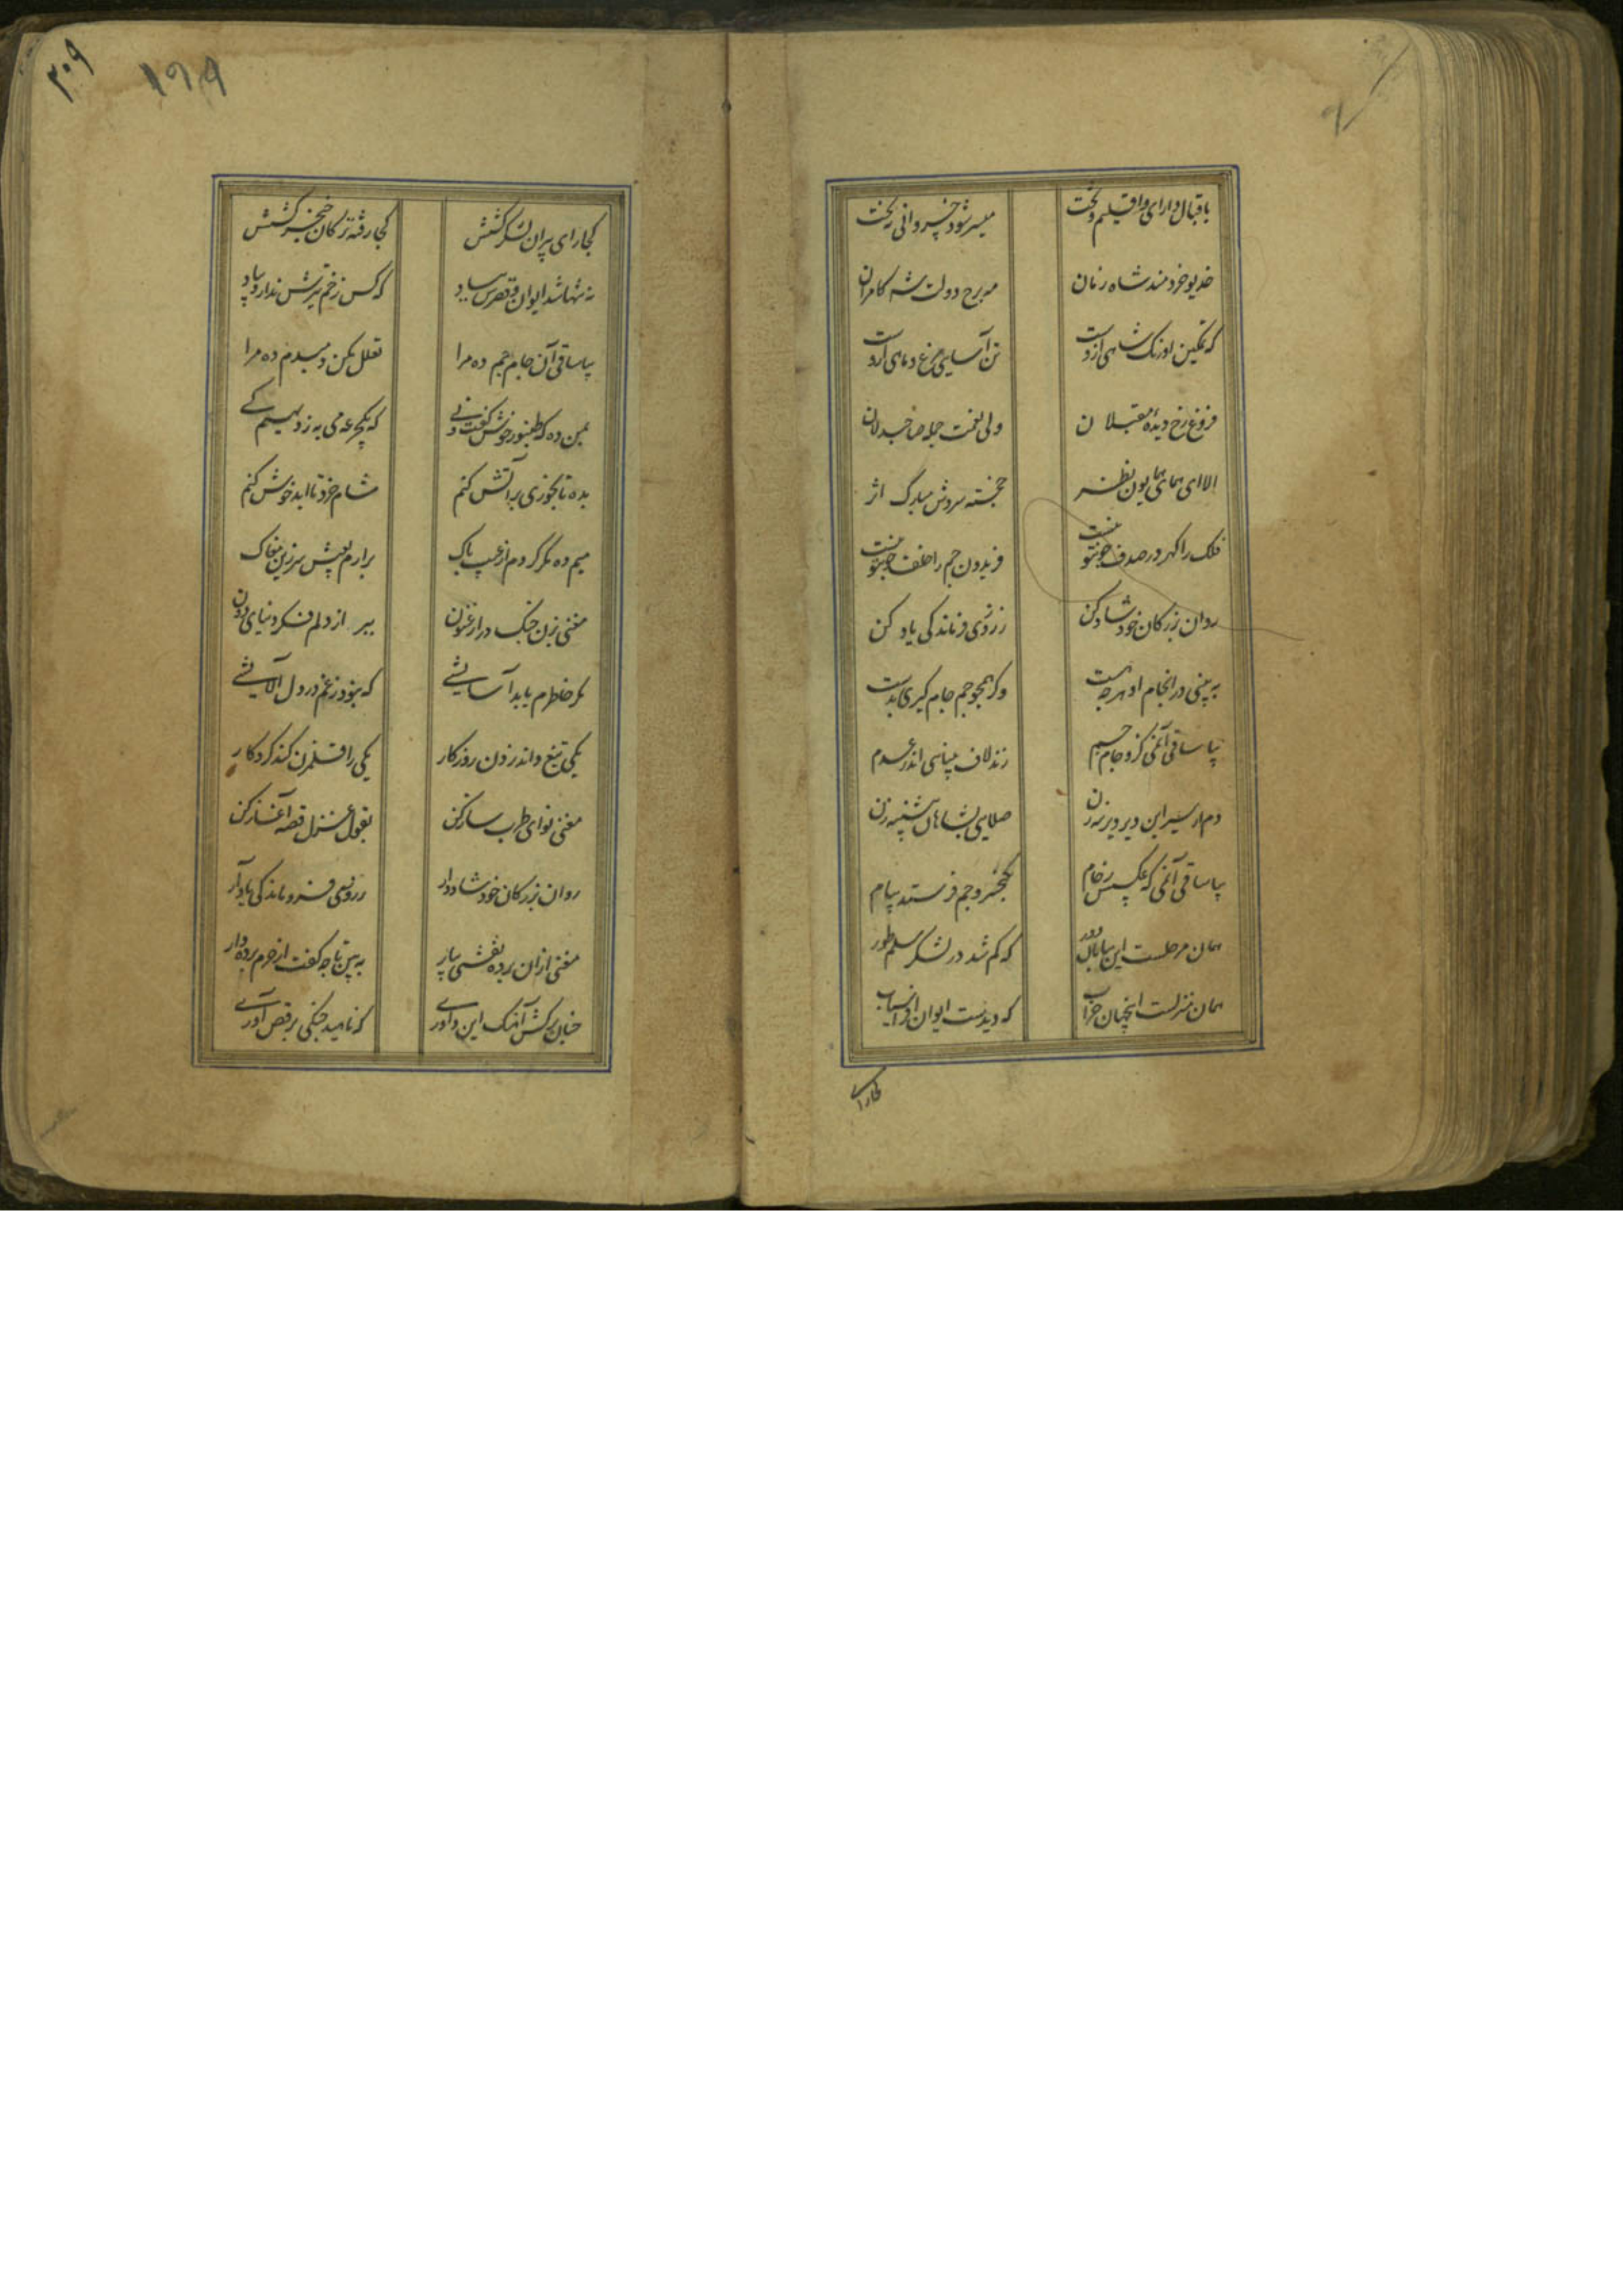 باقبال دارای و اقلیم و تخت میسر شود خسروانی رخت
خدیو خردمند شاه زمان مه برج دولت شه کامران
که تمکین اورنک شاهی ازوست تن آسایی مرغ و ماهی ازوست
فروغ رخ دیده مقبلان ولی نعمت جمله صاحبدلان
الا ای همای همایون نظر خجسته سروش مبارک اثر
فلک را کهر در صدف چون تو نیست فریدون جم را خلف چون تو نیست
روان بزرکان خود شاد کن ز روی فرماندکی یاد کن
به بینی در انجام او هرچه هست وکر همچو جم جام کیری بدست
بیا ساقی آن می کزو جام جم زند لاف بینایی اندر عدم
دم از سیر این دیر دیرینه زن صلایی بشاهان پیشینه زن
بیا ساقی آن می که عکسش ز جام بکیخسرو و جم فرستد پیام
همان مرحله است این بیابان دور که کم شد در لشکر سلم و طور
همان منزلست این جهان خراب که دیدست ایوان افراسیاب
کجا رای
۳۰۹
۱۹۹
کجا رای پیران لشکر کشش کجا رفته ترکان خنجر کشش
نه تنها شد ایوان و قصرش بباد که کس زخم تیرش ندارد بیاد
بیا ساقی آن جام جم ده مرا تعلل مکن دمبدم ده مرا
بمن ده که طنبور خوش کفت و نی که یک جرعه می به ز دیهیم کی
بده تا بخوری بر آتش کنم مشام خرد تا ابد خوش کنم
میم ده مکر کردم از عیب پاک برارم بعیش سر زین مغاک
مغنی بزن چنک در ارغنون ببر از دلم فکر دنیای دون
مکر خاطرم یابد آسایشی که نبود ز غم در دل آلایشی
یکی تیغ داند زدن روز کار یکی را قلمزن کند کردکار
مغنی نوای طرب ساز کن بقول غزل قصه آغاز کن
روان بزرکان خود شاد دار ز روی فروماندکی یاد آر
مغنی ازان پرده نقشی بیار به بین تا چه کفت از حرم پرده دار
چنان برکش آهنک این داوری که ناهید چنکی برقص آوری